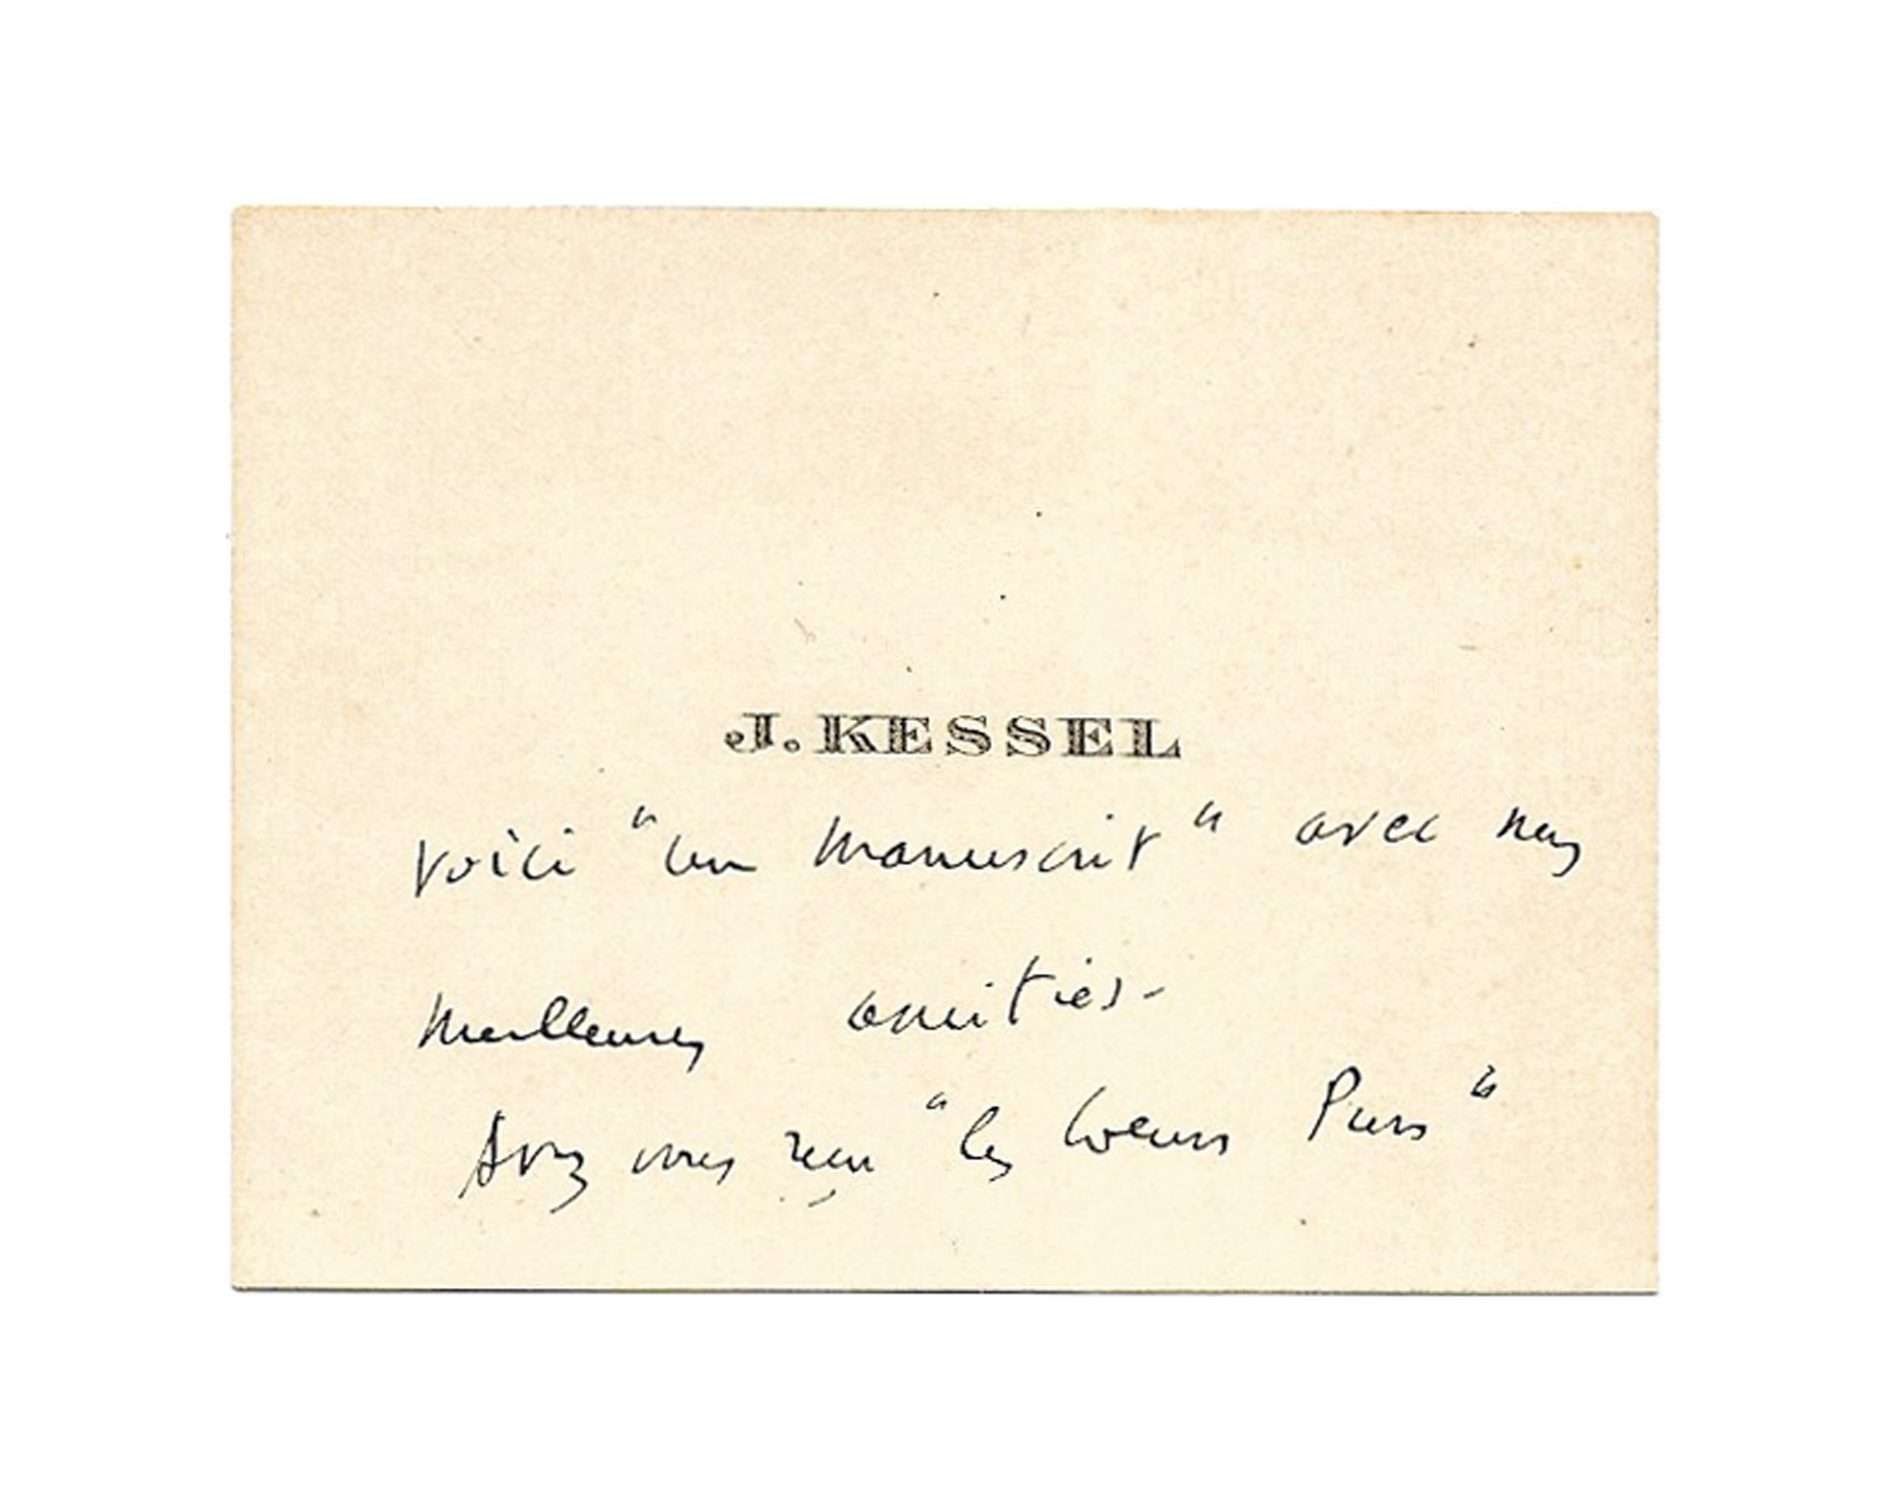 J. KESSEL
Voici "un manuscrit" avec mes
meilleures amitiés -
Avez vous reçu "les Coeurs Purs"